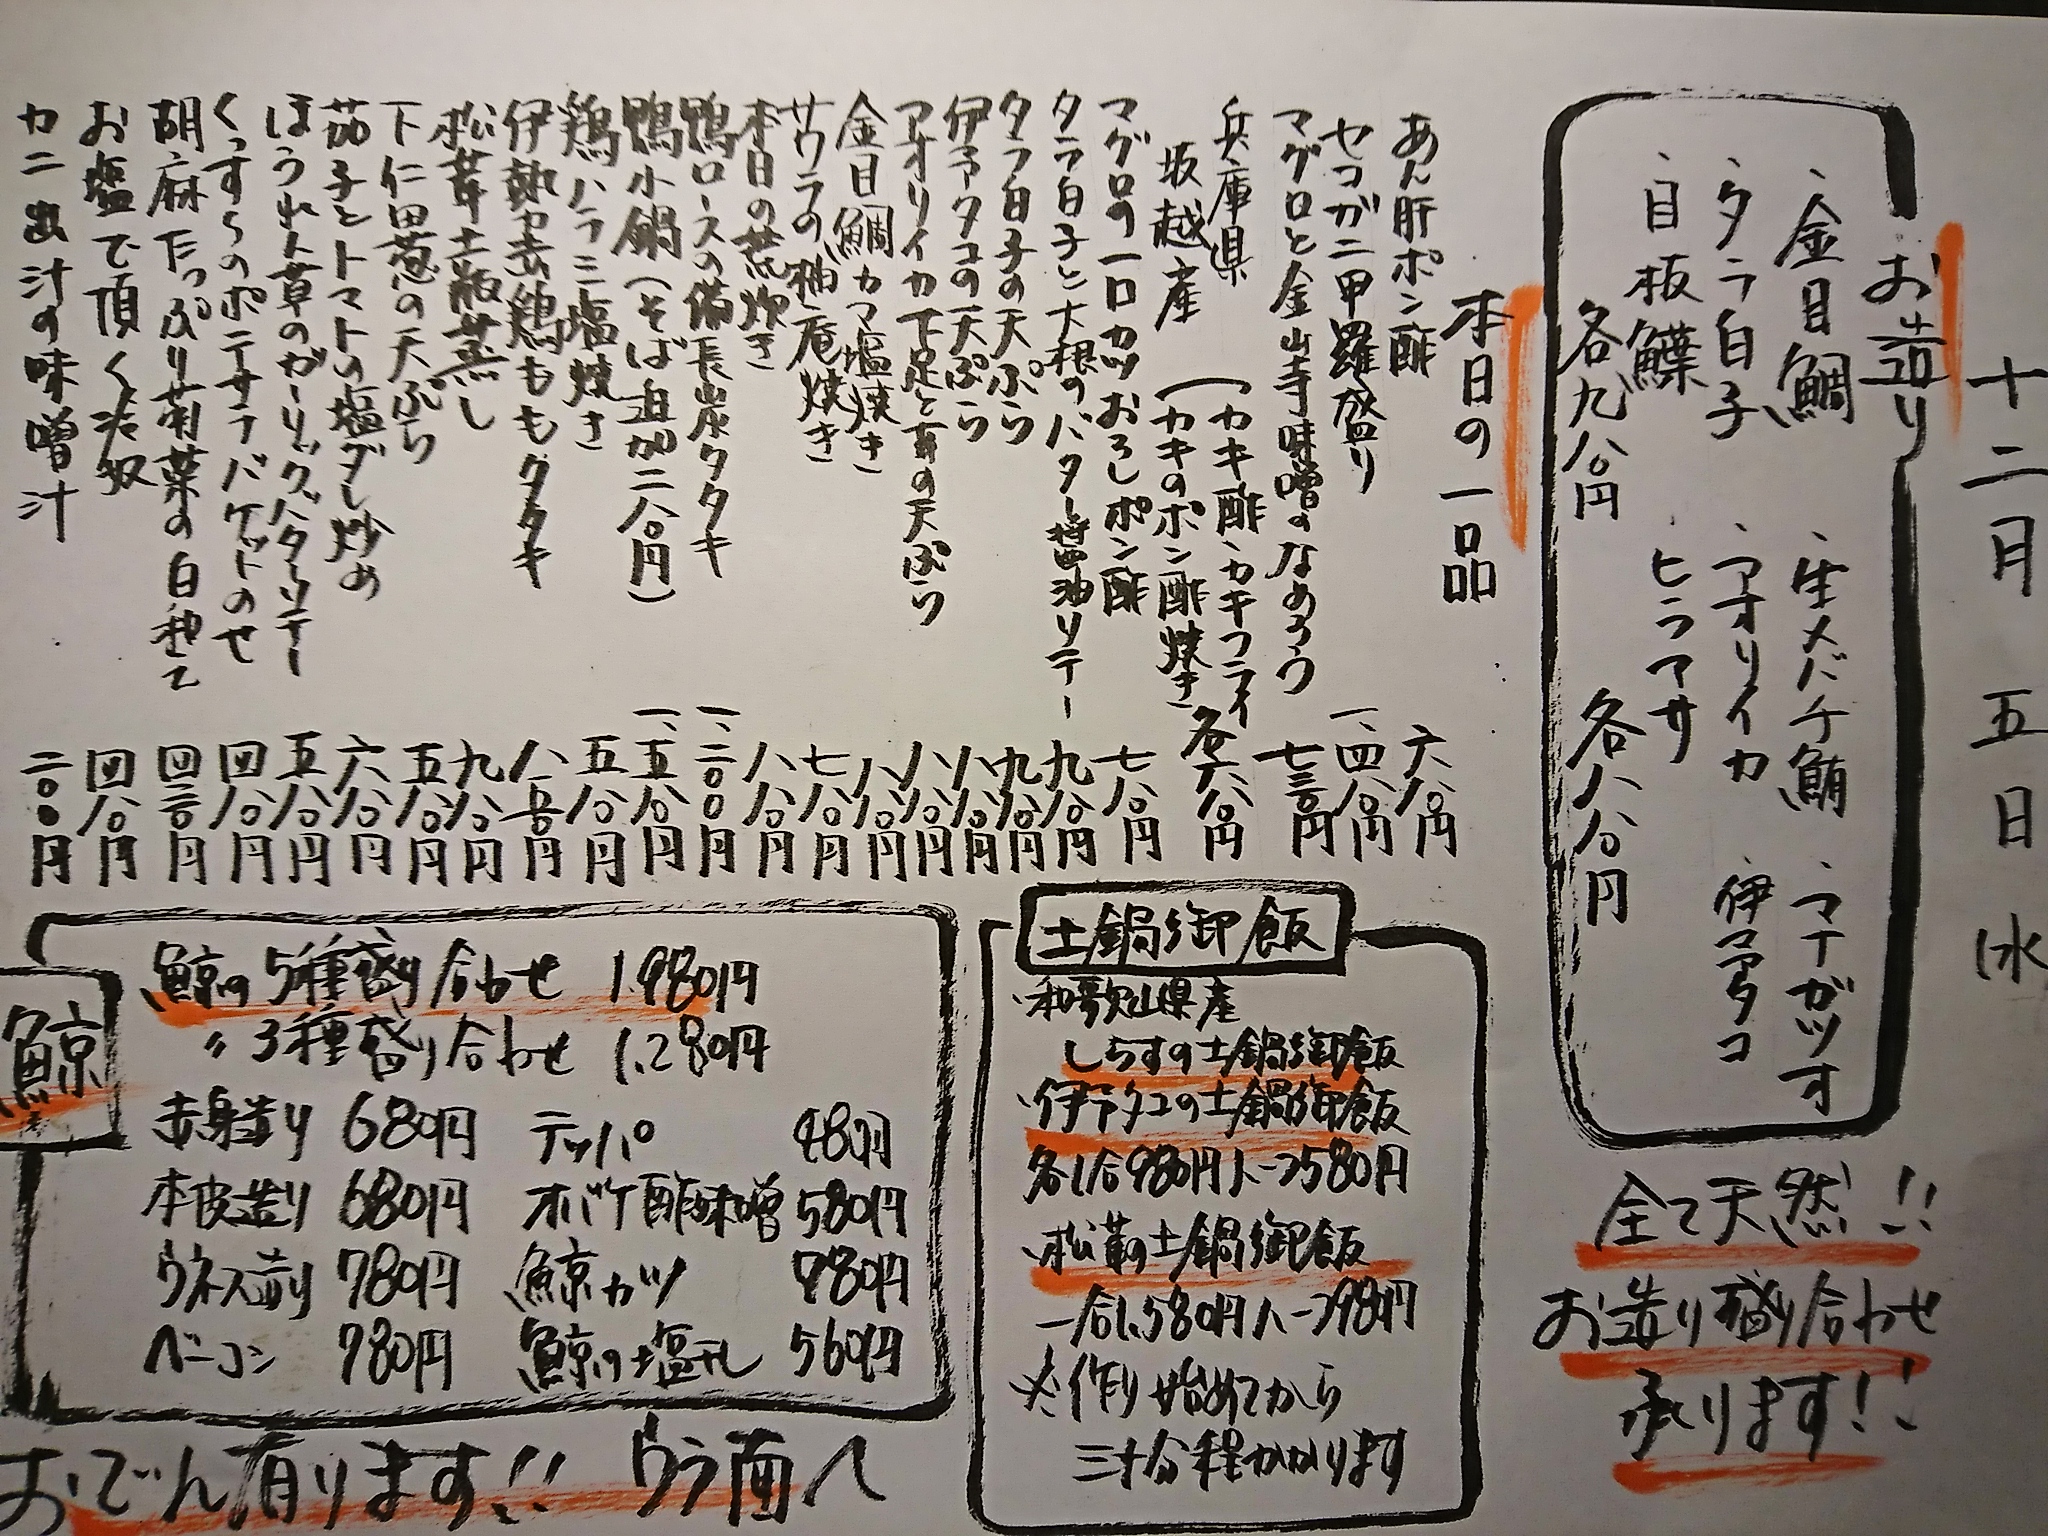 十二月五日水
お造り
、金目鯛 、生メバチ鮪 、マナガツオ
、タラ白子 、アオリイカ 、伊予タコ
、目板鰈 、ヒラマサ
各九八〇円 各八八〇円
全て天然!!
お造り盛り合わせ
承ります!!
本日の一品
あん肝ポン酢 六八〇円
セコガニ甲羅盛り 一、四八〇円
マグロと金山寺味噌のなめろう 七三〇円
兵庫県 (カキ酢、カキフライ
坂越産 (カキのポン酢焼き 各六八〇円
マグロの一口カツおろしポン酢 七八〇円
タラ白子と大根のバター醤油ソテー 九八〇円
タラ白子の天ぷら 九八〇円
伊予タコの天ぷら 八八〇円
アオリイカ下足と耳の天ぷら 八八〇円
金目鯛カマ塩焼き 八八〇円
サワラの柚庵焼き 七八〇円
本日の荒炊き 八八〇円
鴨ロースの備長炭タタキ 一、二〇〇円
鴨小鍋(そば追加二八〇円) 一、五八〇円
鶏ハラミ塩焼き 五八〇円
伊勢赤鶏ももタタキ 八五〇円
松茸土瓶蒸し 九八〇円
下仁田葱の天ぷら 五八〇円
茄子とトマトの塩ダレ炒め 六八〇円
ほうれん草のガーリックバターソテー 五八〇円
くっすらのポテサラバケットのせ 四八〇円
胡麻たっぷり菊菜の白和え 四三〇円
お塩で頂く冷奴 四八〇円
カニ出汁の味噌汁 二〇〇円
土鍋御飯
、和歌山県産
しらすの土鍋御飯
、伊予タコの土鍋御飯
各1合980円ハーフ580円
、松茸の土鍋御飯
一合1.580円ハーフ980円
※作り始めてから
三十分程かかります
鯨
鯨の5種盛り合わせ 1.980円
〃3種盛り合わせ 1.280円
赤身造り 680円 テッパ 480円
本皮造り 680円 オバケ酢味噌 580円
ウネス造り 780円 鯨カツ 880円
ベーコン 780円 鯨の塩干し 560円
おでん有ります!! ウラ面へ